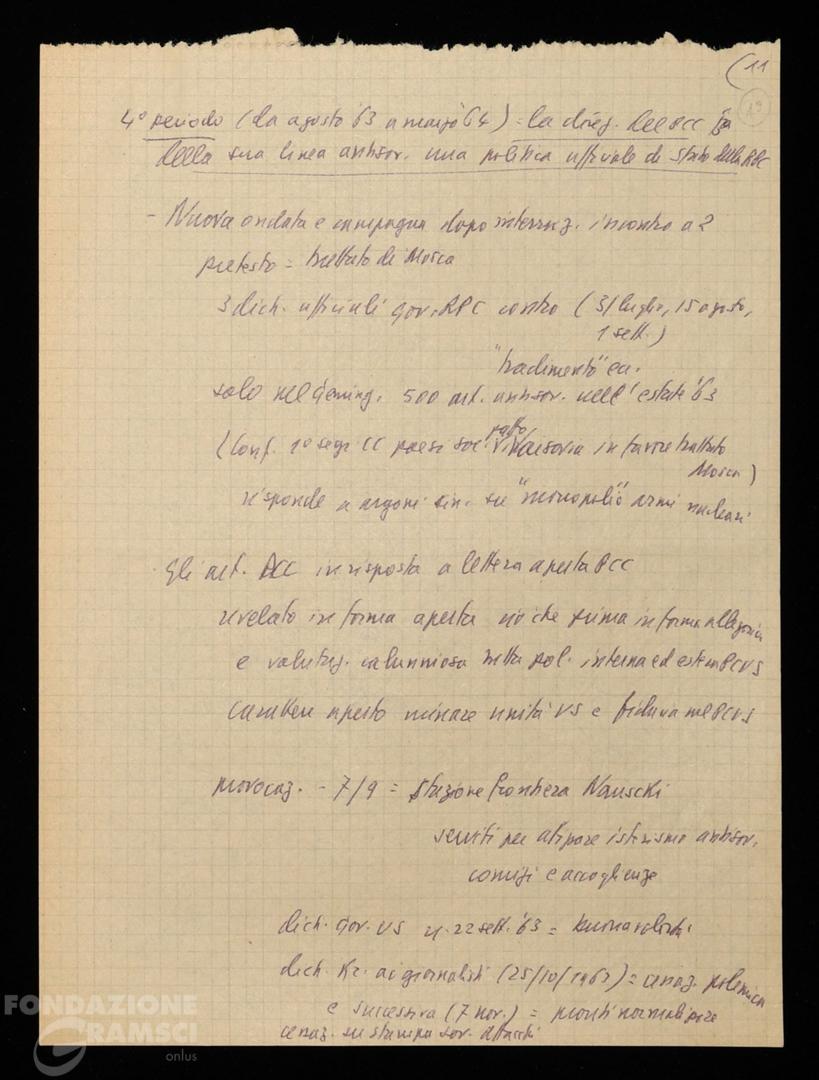 (11
19
4° periodo (da agosto '63 a marzo '64) = la direz. del PCC fa
della sua linea antisov. una politica ufficiale di Stato della RPC
- Nuova ondata e campagna dopo interruz. incontro a 2
pretesto = trattato di Mosca
3 dich. ufficiali gov. RPC contro (31 luglio, 15 agosto,
1 sett.)
"tradimento" ecc.
solo nel Geming. 500 art. antisov. nell'estate '63
(Conf. 1° segr. CC paesi soc. patto Varsavia in favore trattato
Mosca)
risponde a argom. cin. su "monopolio" armi nucleari
- Gli art. PCC in risposta a lettera aperta PCC
rivelato in forma aperta ciò che prima in forma allegorica
e valutaz. calunniosa sulla pol. interna ed estera PCUS
carattere aperto minare unità US e fiducia nel PCUS
provocaz. - 7/9 = stazione frontiera Nauscki
serviti per attizzare isterismo antisov.
comizi e accoglienze
dich. gov. US 21-22 sett. '63 = buona volontà
dich. Kr. ai giornalisti (25/10/1963) = cessaz. polemica
e successiva (7 nov.) = pronti normalizzare
cessaz. su stampa sov. attacchi
FONDAZIONE
GRAMSCI
onlus